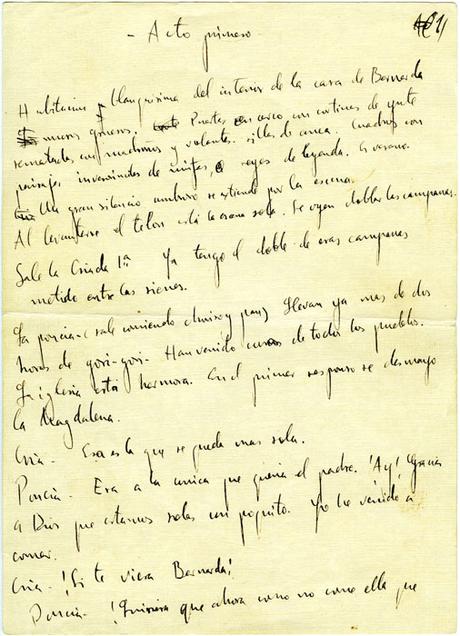 - Acto primero -
Habitación blanquísima del interior de la casa de Bernarda
muros gruesos. Puertas en arco con cortinas de yute
rematadas con madroños y volantes. sillas de anea. Cuadros con
paisajes inverosímiles de ninfas, o reyes de leyenda. Es verano.
Un gran silencio umbroso se extiende por la escena.
Al levantarse el telon está la escena sola. Se oyen doblar las campanas.
Sale la Criada 1ª Ya tengo el doble de esas campanas
metido entre las sienes.
La poncia - (sale comiendo chorizo y pan) Llevan ya mas de dos
horas de gori-gori. Han venido curas de todos los pueblos.
La iglesia está hermosa. En el primer responso se desmayó
la Magdalena.
Cria - Esa es la que se queda mas sola.
Poncia - Era a la unica que queria el padre. ¡Ay! Gracias
a Dios que estamos solas un poquito. Yo he venido a
comer.
Cria - ¡Si te viera Bernarda!
Poncia - ¡Quisiera que ahora como no come ella que